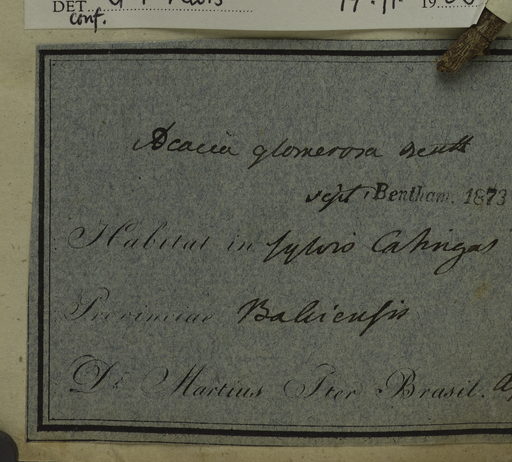 DET. G P Lewis 19
conf.
Acacia glomerosa Benth
sept Bentham. 1873
Habitat in sylvis Catingas
Provinciae Bahiensis
Dr. Martius Iter Brasil.